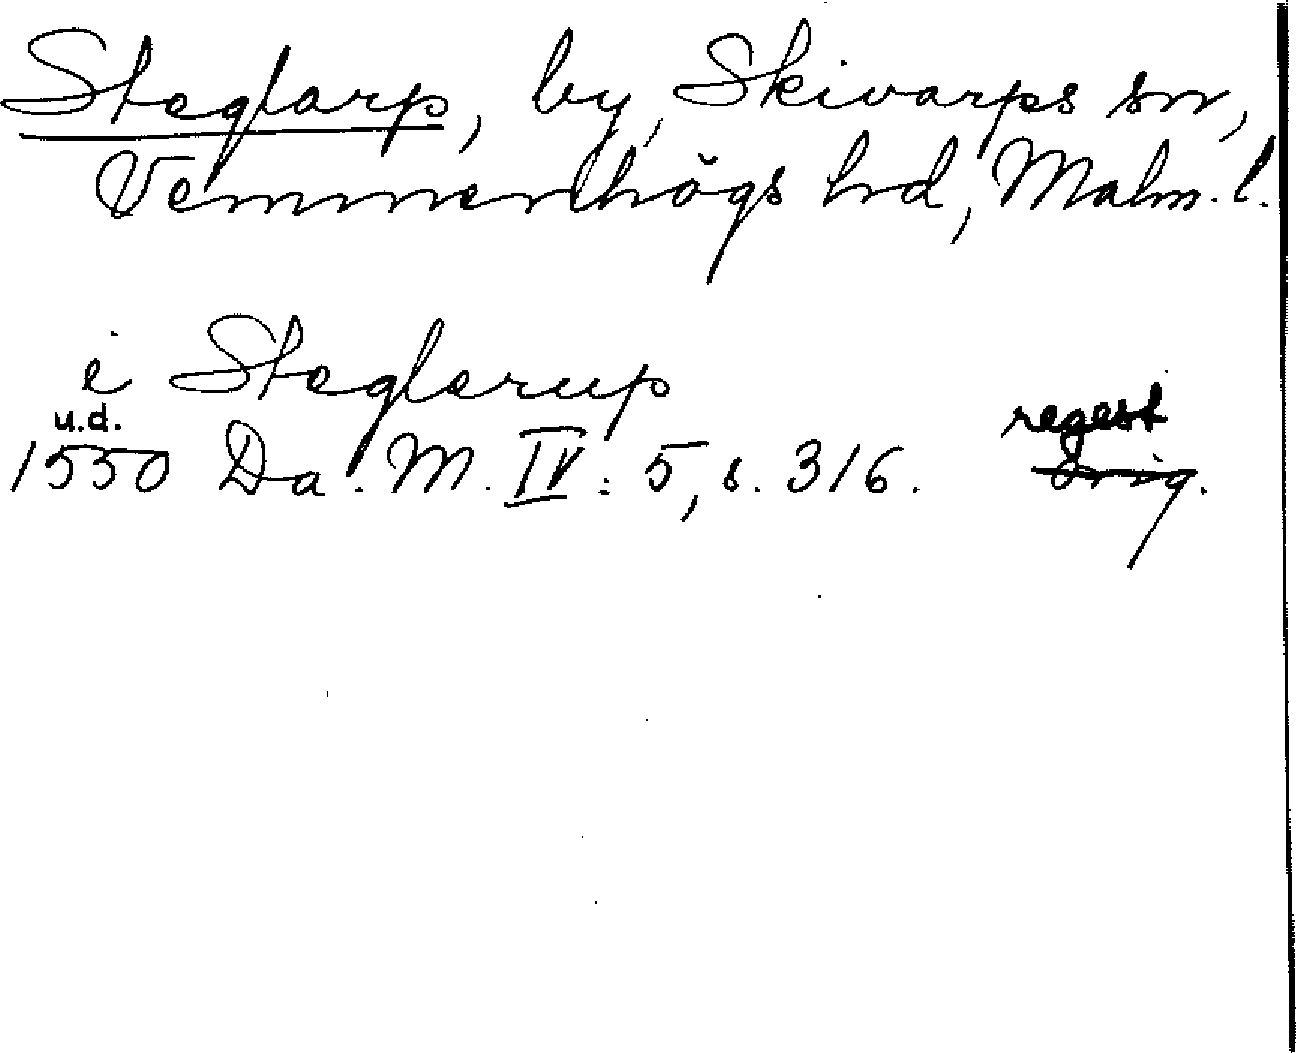 Steglarp, by, Skivarps sn,
Vemmenhögs hd, Malm. l.
i Steglerup
u.d.
regest
1550 Da. M. IV: 5, s. 316. Orig.